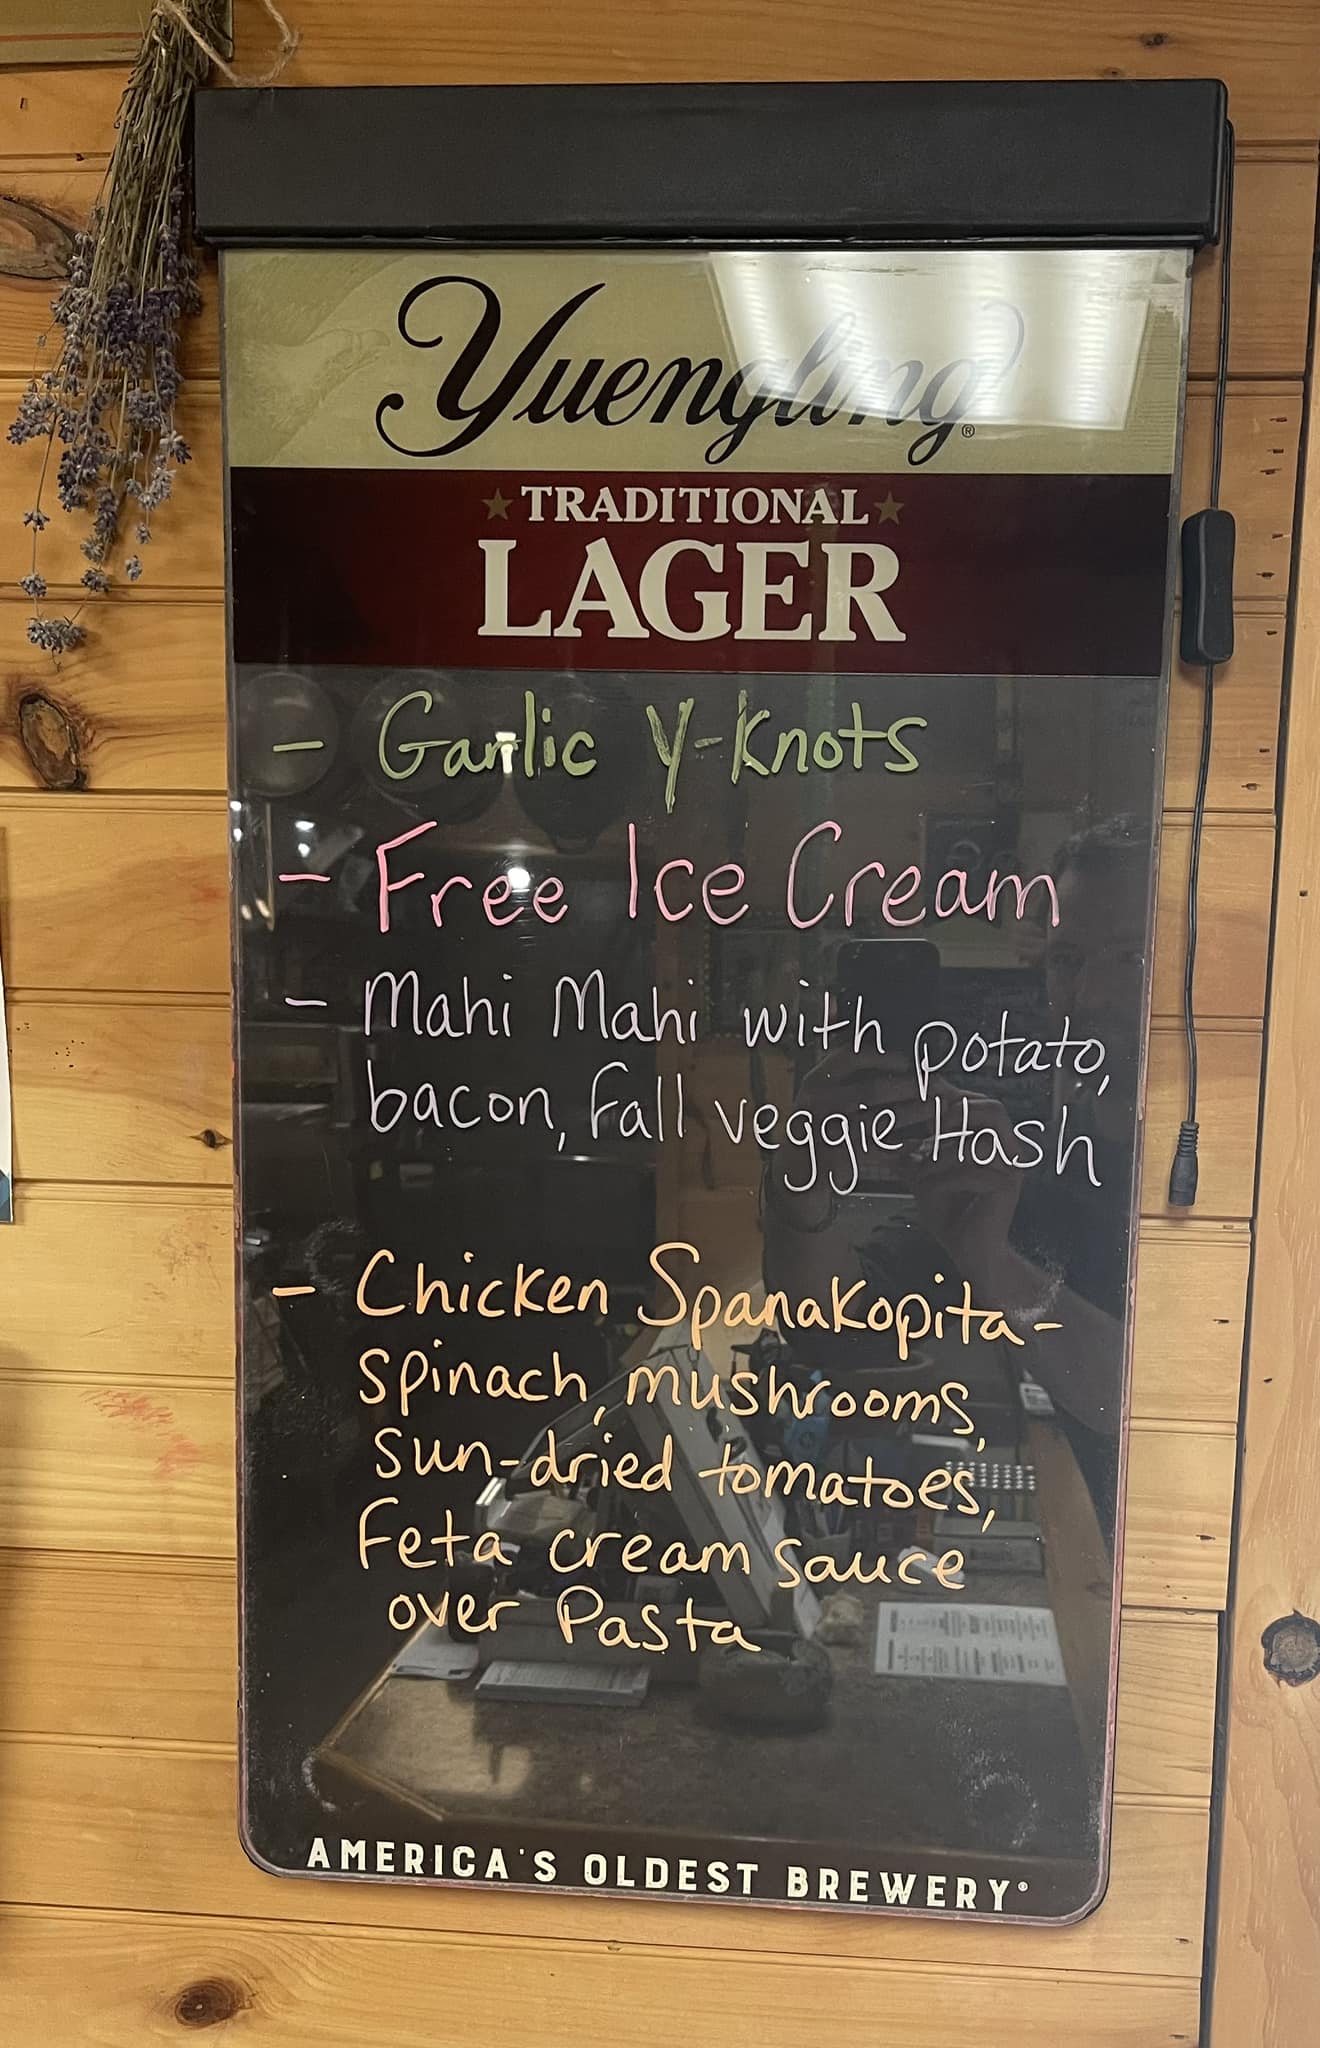 Yuengling®
TRADITIONAL
LAGER
- Garlic Y-Knots
- Free Ice Cream
- Mahi Mahi with potato,
bacon, Fall veggie Hash
- Chicken Spanakopita-
spinach, mushrooms,
sun-dried tomatoes,
Feta cream sauce
over Pasta
AMERICA'S OLDEST BREWERY®